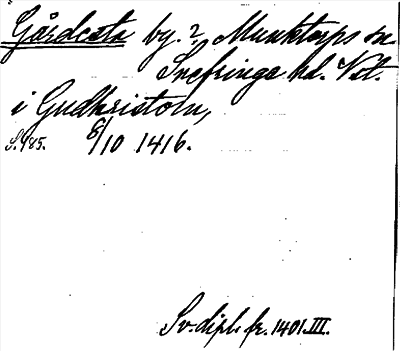 Gårdcæta by.? Munktorps sn
Snefringe hd. Vstl.
i Gudhristoln,
S.485. 8/10 1416.
Sv. dipl. fr. 1401. III.